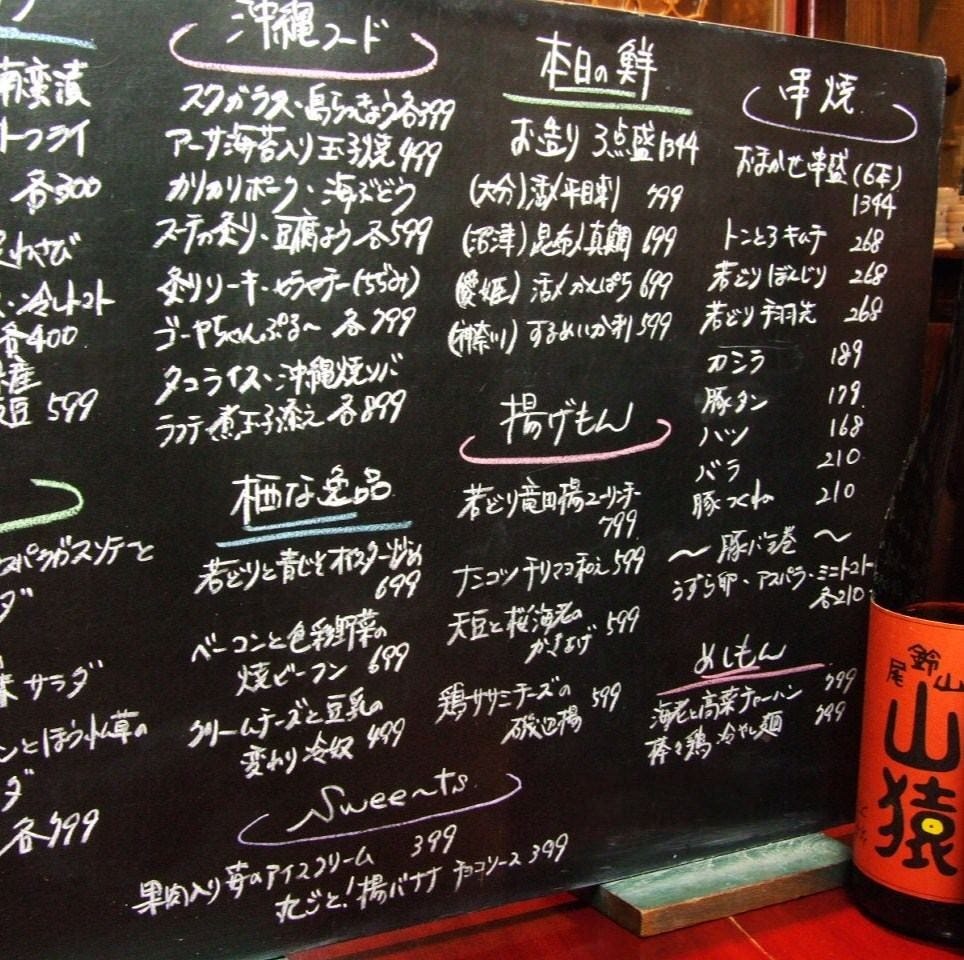 南蛮漬
トフライ
各300
わさび
冷しトマト
各400
産
豆 599
沖縄フード
スクガラス・島らっきょう 各399
アーサ海苔入り玉子焼 499
カリカリポーク・海ぶどう
スーチカ炙り・豆腐よう 各599
炙りソーキ・セラヤチー(ちぢみ)
ゴーヤちゃんぷる〜 各799
タコライス・沖縄焼ソバ
ラフテー煮玉子添え 各899
本日の鮮
お造り 3点盛 1344
(大分)活〆平目刺 799
(沼津)昆布〆真鯛 199
(愛媛)活〆かんぱち 699
(神奈川)するめいか刺 599
串焼
おまかせ串盛(6本)
1344
トンとろキムチ 268
若どりぼんじり 268
若どり手羽先 268
カシラ 189
豚タン 179
ハツ 168
バラ 210
豚つくね 210
〜豚バラ巻〜
うずら卵・アスパラ・ミニトマト
各210
揚げもん
若どり竜田揚ユーリンチー
799
ナンコツチリマヨ和え 599
天豆と桜海老の
かきあげ 599
鶏ササミチーズの 599
磯辺揚
めしもん
海老と高菜チャーハン 799
棒々鶏冷やし麺 799
栖な逸品
若どりと青じそオイスター炒め
699
ベーコンと色彩野菜の
焼ビーフン 699
クリームチーズと豆乳の
変わり冷奴 499
スパラガスソテーと
ダ
サラダ
ンとほうれん草の
ダ
各799
Sweets
果肉入り苺のアイスクリーム 399
丸ごと!揚バナナ チョコソース 399
尾鈴山
山猿